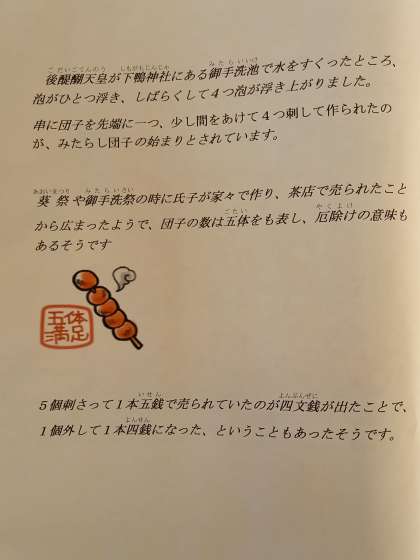 後醍醐天皇が下鴨神社にある御手洗池で水をすくったところ、
泡がひとつ浮き、しばらくして４つ泡が浮き上がりました。
串に団子を先端に一つ、少し間をあけて４つ刺して作られたの
が、みたらし団子の始まりとされています。
葵祭や御手洗祭の時に氏子が家々で作り、茶店で売られたこと
から広まったようで、団子の数は五体をも表し、厄除けの意味も
あるそうです
五体
満足
５個刺さって１本五銭で売られていたのが四文銭が出たことで、
１個外して１本四銭になった、ということもあったそうです。